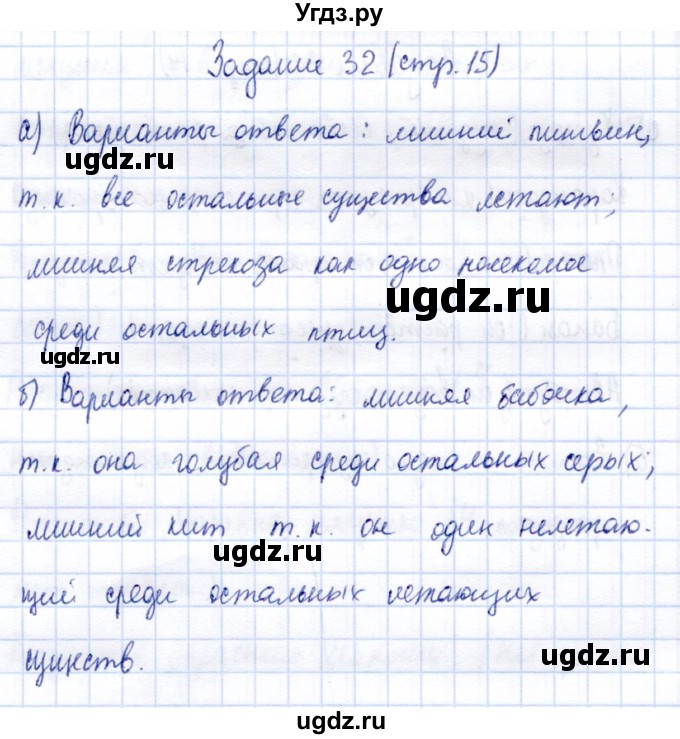 Угдз.ру
Задание 32 (стр. 15)
а) Варианты ответа: лишний пингвин,
ugdz.ru
т.к. все остальные существа летают,
лишняя стрекоза как одно насекомое
ugdz.ru
среди остальных птиц.
ugdz.ru
б) Варианты ответа: лишняя бабочка,
т.к. она голубая среди остальных серых;
лишний кит т.к. он один нелетаю-
ugdz.ru
щий среди остальных летающих
существ.
ugdz.ru
ugdz.ru